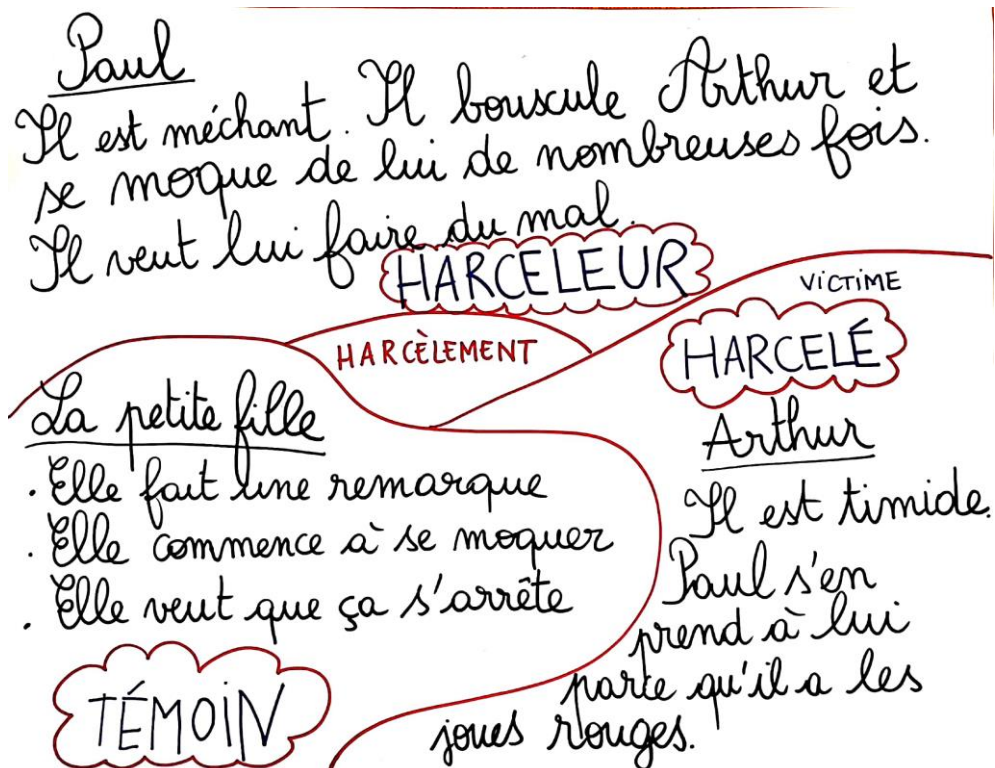 Paul
Il est méchant. Il bouscule Arthur et
se moque de lui de nombreuses fois.
Il veut lui faire du mal.
HARCELEUR
HARCÈLEMENT
VICTIME
HARCELÉ
Arthur
Il est timide.
Paul s'en
prend à lui
parce qu'il a les
joues rouges.
La petite fille
. Elle fait une remarque
. Elle commence à se moquer
. Elle veut que ça s'arrête
TÉMOIN